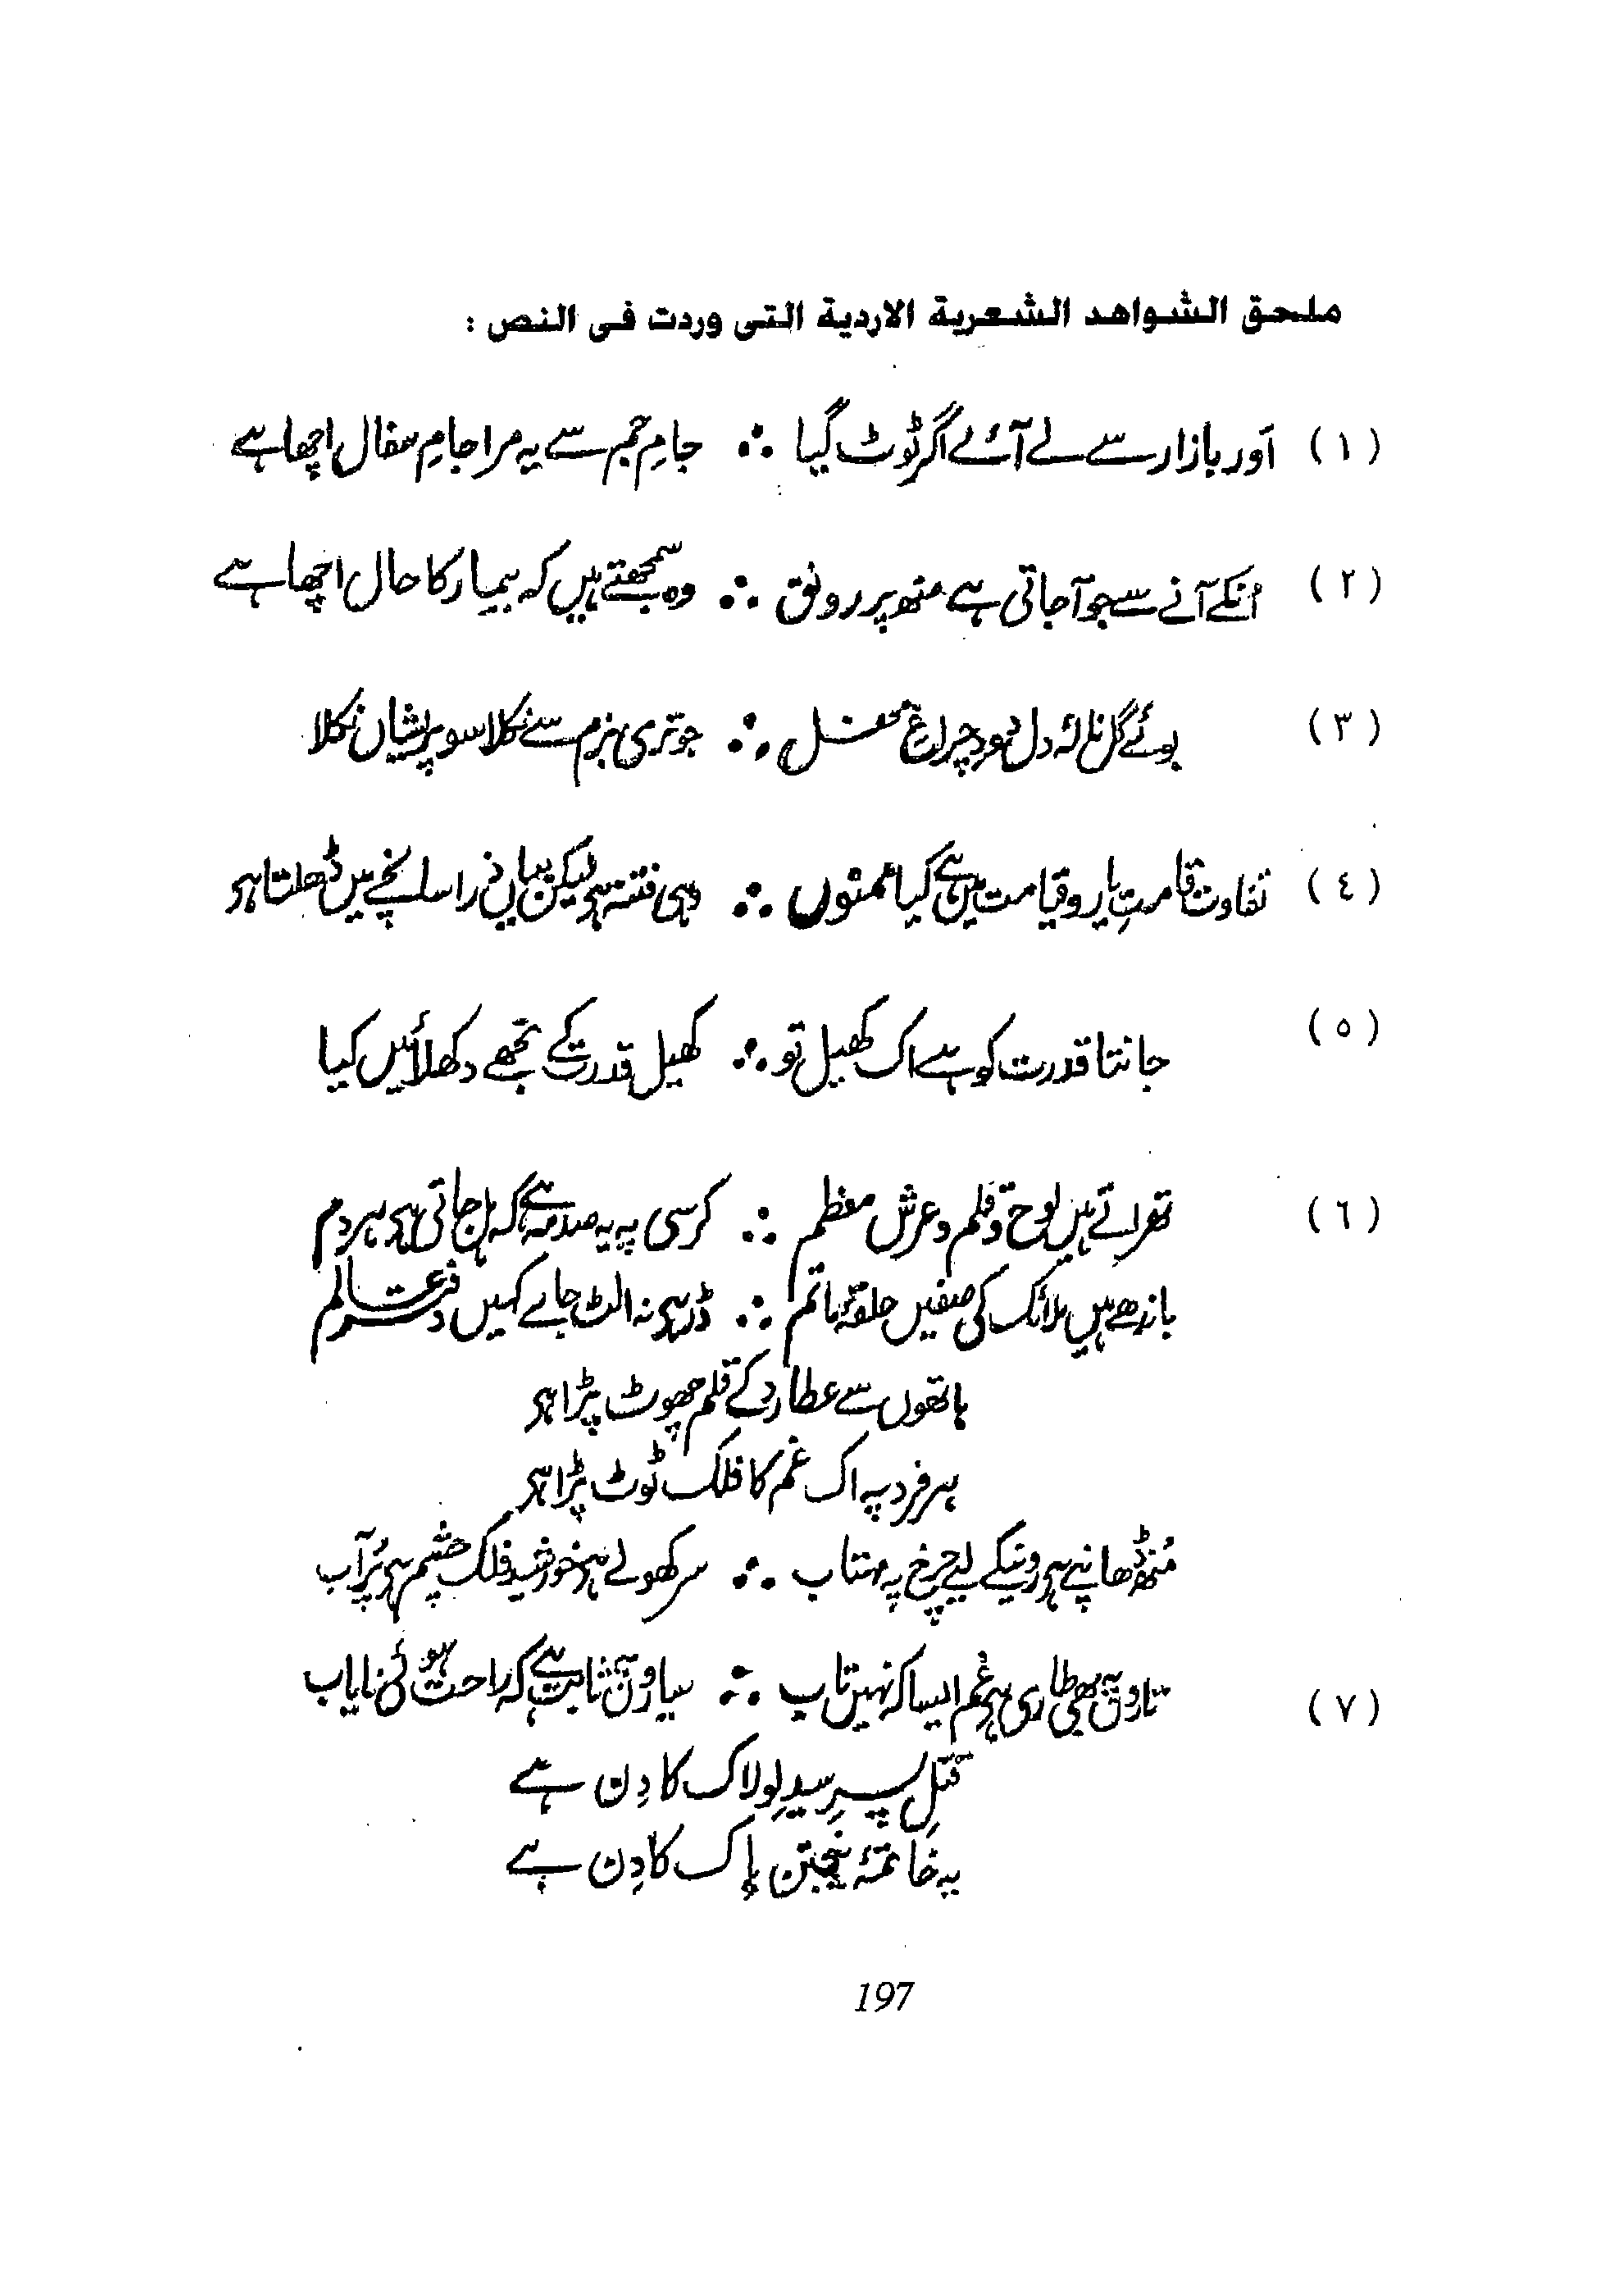 ملحق الشواهد الشعرية الاردية التى وردت فى النص :
(١) اَور بازار سے لے آئے اگر ٹوٹ گیا ∴ جامِ جم سے یہ مرا جامِ سفال اچھا ہے
(٢) اُنکے آنے سے جو آجاتی ہے منھ پر رونق ∴ وہ سمجھتے ہیں کہ بیمار کا حال اچھا ہے
(٣) بوئے گل نالۂ دل دودِ چراغِ محفل ∴ جو تری بزم سے نکلا سو پریشان نکلا
(٤) تفاوت قامتِ یار و قیامت میں ہے کیا ممنوں ∴ وہی فتنہ ہی لیکن یہاں ذرا سانچے میں ڈھلتا ہی
(٥) جانتا قدرت کو ہے اک کھیل تو ∴ کھیل قدرت کے تجھے دکھلائیں کیا
(٦) تھراتے ہیں لوح و قلم و عرش معظم ∴ کرسی پہ یہ صدمہ ہے کہ ہل جاتی ہی ہر دم
باندھے ہیں ملائک کی صفیں حلقۂ ماتم ∴ ڈر ہی نہ الٹ جاے کہیں دفتر عالم
ہاتھوں سے عطارد کے قلم چھوٹ پڑا ہی
ہر فرد پہ اک غم کا فلک ٹوٹ پڑا ہی
مُنھ ڈھانپے ہی رونیکے لیے چرخ پہ مہتاب ∴ سر کھولے ہی خورشید فلک چشم ہی پُر آب
(٧) تاروں پہ بھی طاری ہی غم ایسا کہ نہیں تاب ∴ سیاروں ثابت ہے کہ راحت ہوئی نایاب
قتلِ پسرِ سیدِ لولاک کا دِن ہے
یہ خاتمۂ پنجتن پاک کا دِن ہے
197